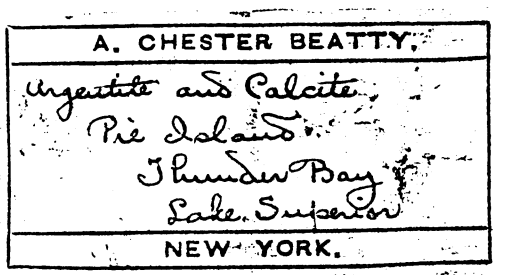 A. CHESTER BEATTY.
Argentite and Calcite
Pie Island
Thunder Bay
Lake Superior
NEW YORK.